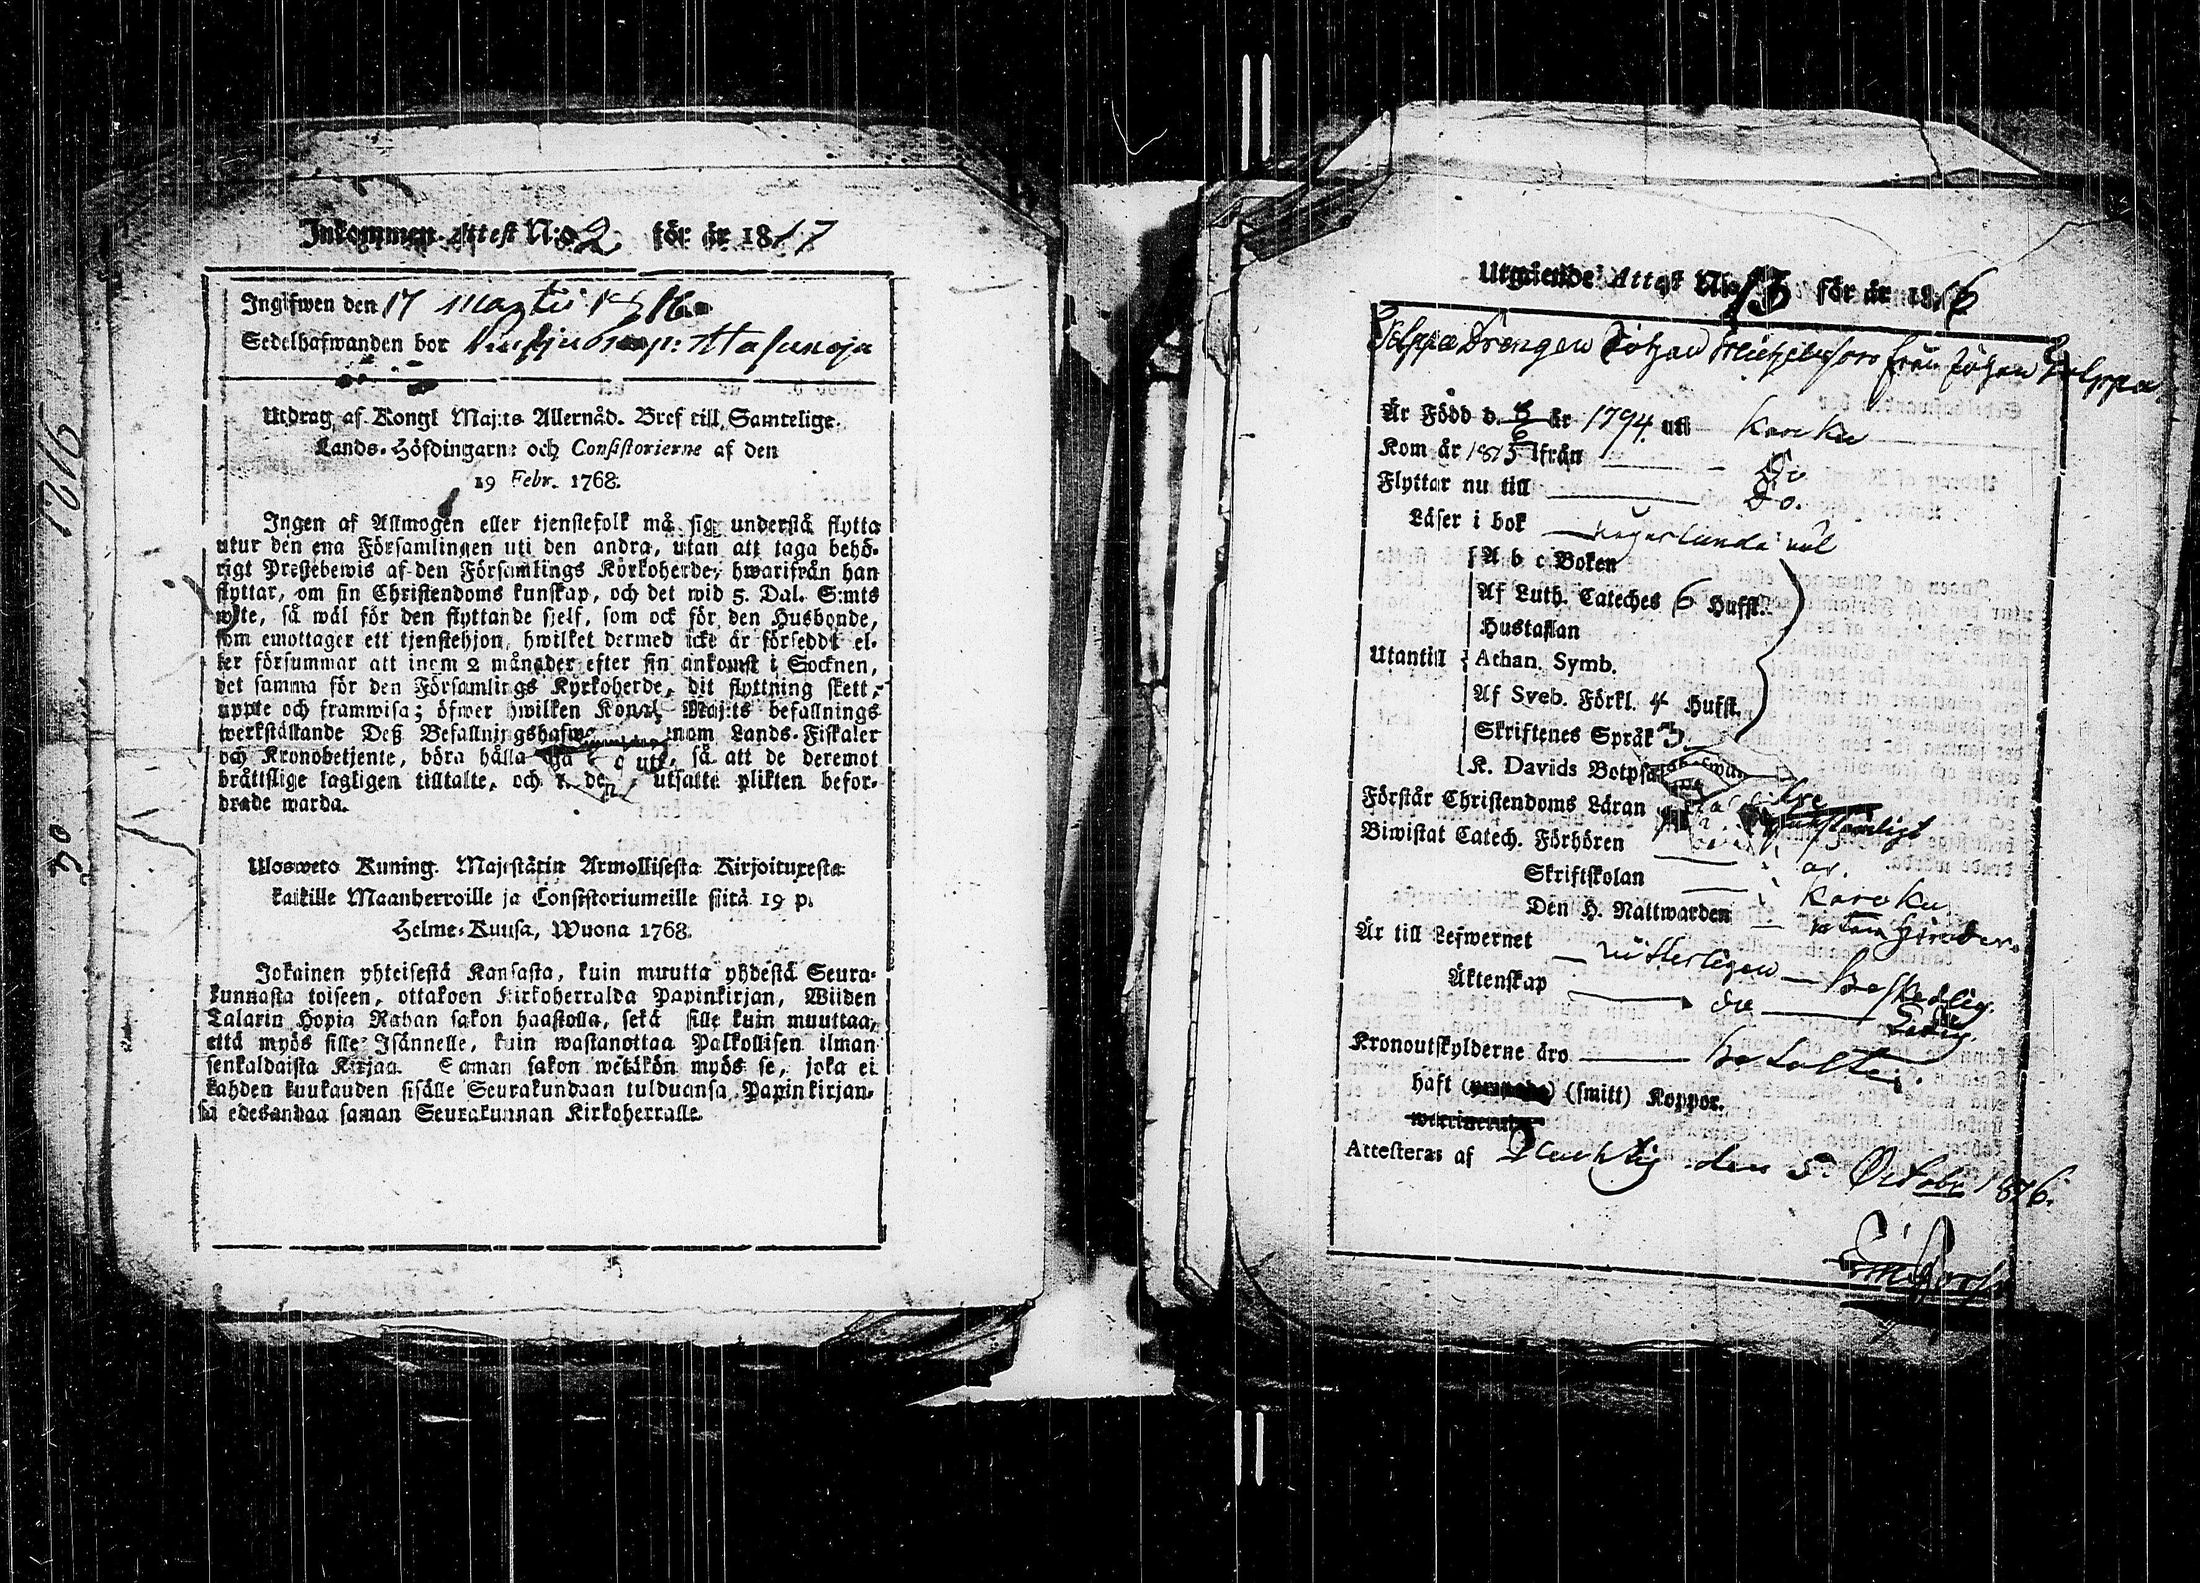 Inkommen Attest N:o 2 för år 1817
Ingifwen den 17 Martii 1816
Sedelhafwanden bor
Utdrag af Kongl Maj:ts Allernåd. Bref till Samtelige
Lands-Höfdingarne och Consistorierne af den
19 Febr. 1768.
Ingen af Allmogen eller tjenstefolk må sig understå flytta
utur den ena Församlingen uti den andra, utan att taga behö-
rigt Prestebewis af den Församlings Körkoherde, hwarifrån han
flyttar, om sin Christendoms kunskap, och det wid 5. Dal. S:mts
wite, så wäl för den flyttande sjelf, som ock för den Husbonde,
som emottager ett tjenstehjon, hwilket dermed icke är förseddt el-
ler försummar att inom 2 månader efter sin ankomst i Socknen,
det samma för den Församlings Kyrkoherde, dit flyttning skett,
uppte och framwisa; öfwer hwilken Kongl Maj:ts befallnings
werkställande Deß Befallningshafwa nom Lands-Fiskaler
och Kronobetjente, böra hålla , så att de deremot
bråttslige lagligen tilltalte, och utsatte plikten befor-
drade warda.
Ulosweto Kuning. Majestätin Armollisesta Kirjoituxesta
kaikille Maanherroille ja Consistoriumeille siitä 19 p.
Helme-Kuusa, Wuona 1768.
Jokainen yhteisestä Kansasta, kuin muutta yhdestä Seura-
kunnasta toiseen, ottakoon Kirkoherralda Papinkirjan, Wiiden
Talarin Hopia Rahan sakon haastolla, sekä sille kuin muuttaa,
että myös sille Isännelle, kuin wastanottaa Palkollisen ilman
senkaldaista Kirjaa. Saman sakon wetäkön myös se, joka ei
kahden kuukauden sisälle Seurakundaan tulduansa Papinkirjan-
sa edesandaa saman Seurakunnan Kirkoherralle.
1816
20
Utgående Attest N:o 13 för år 1816
Drengen Johan Michelsson från
Är Född d. 8/6 år 1794 uti Karcku
Kom år 1815 ifrån Do
Flyttar nu till Do.
Läser i bok
A b c Boken
Af Luth. Cateches 6 Hufst.
Hustaflan
Utantill Athan. Symb.
Af Sveb. Förkl. 4 Hufst.
Skriftenes Språk 3.
K. Davids Botps
Förstår Christendoms Läran
Biwistat Catech. Förhören
Skriftskolan
Den H. Nattwarden Karcku
Är till Lefwernet beskedlig.
Äktenskap Ledig.
Kronoutskylderne äro betalte.
haft (smitt) Koppor.
Attesteras af den 5 Octobr 1816.